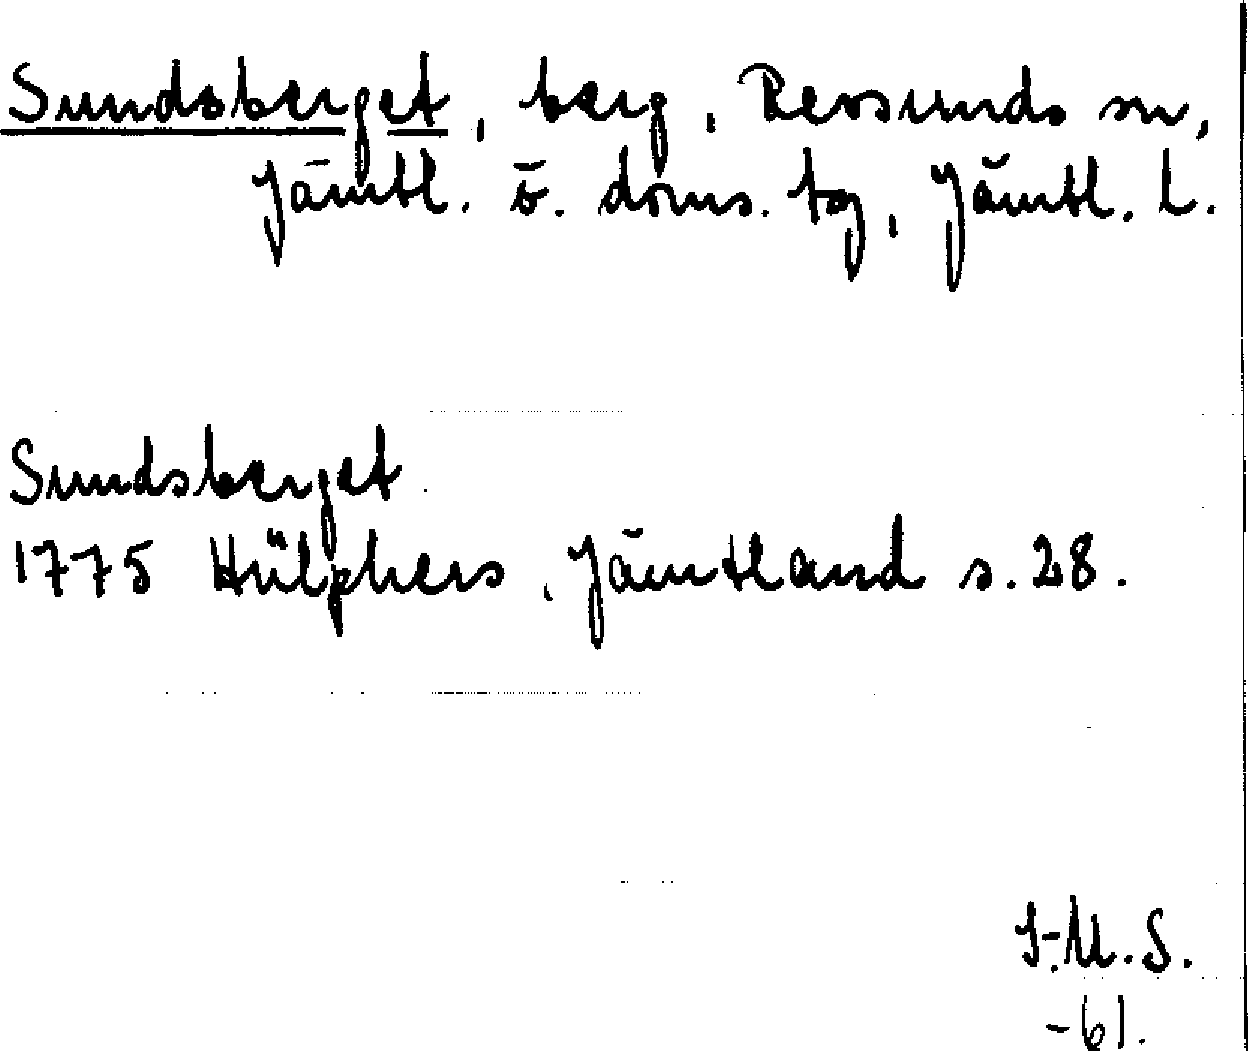 Sundsberget, berg, Revsunds sn,
Jämtl. ö. doms. tg, Jämtl. l.
Sundsberget
1775 Hülphers, Jämtland s. 28.
I-M.S.
-61.